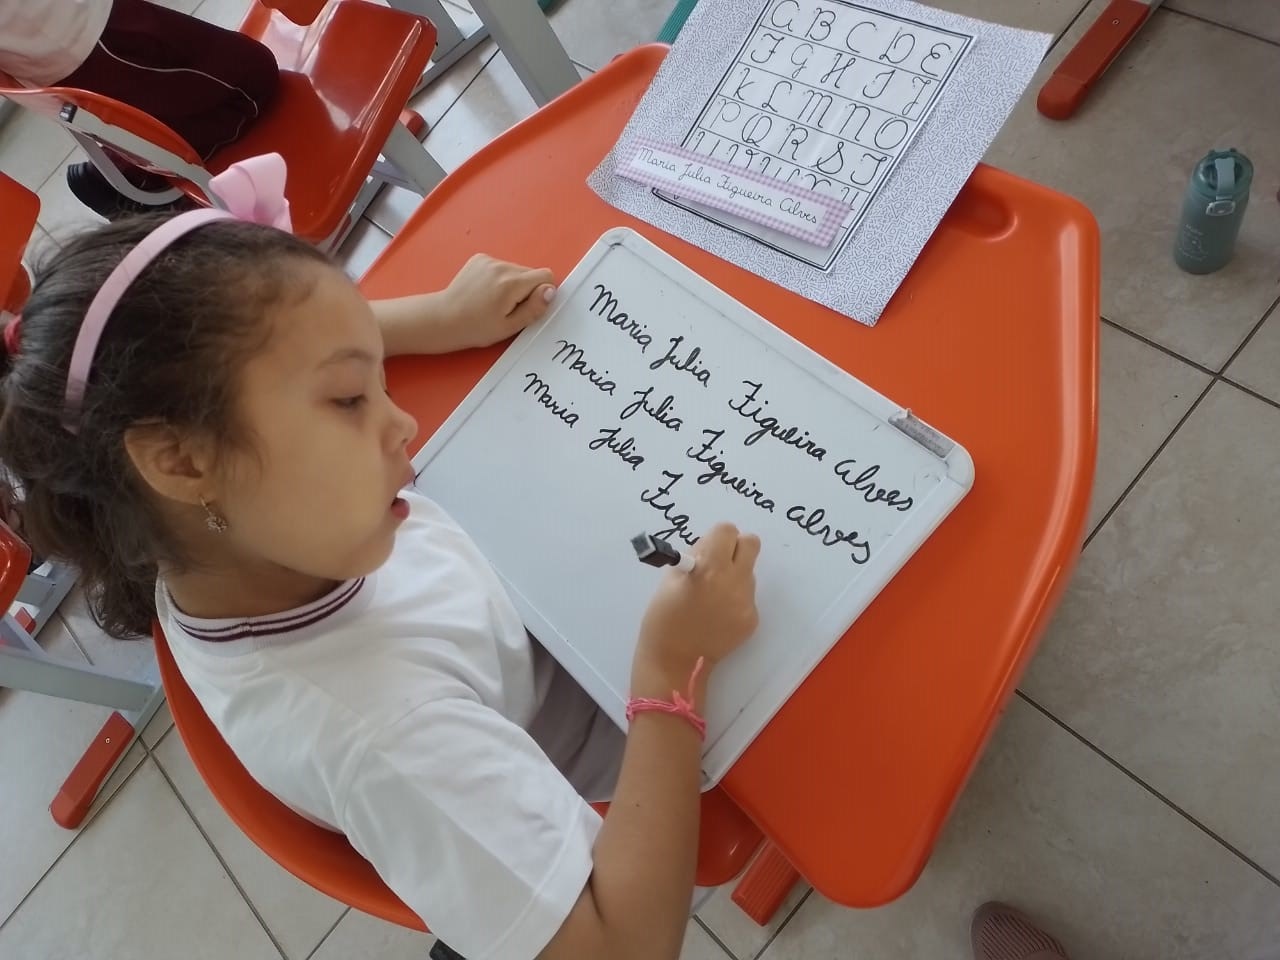 A B C D E
F G H I J
K L M N O
P Q R S T
Maria Julia Figueira Alves
Maria Julia Figueira Alves
Maria Julia Figueira Alves
Maria Julia
Figu